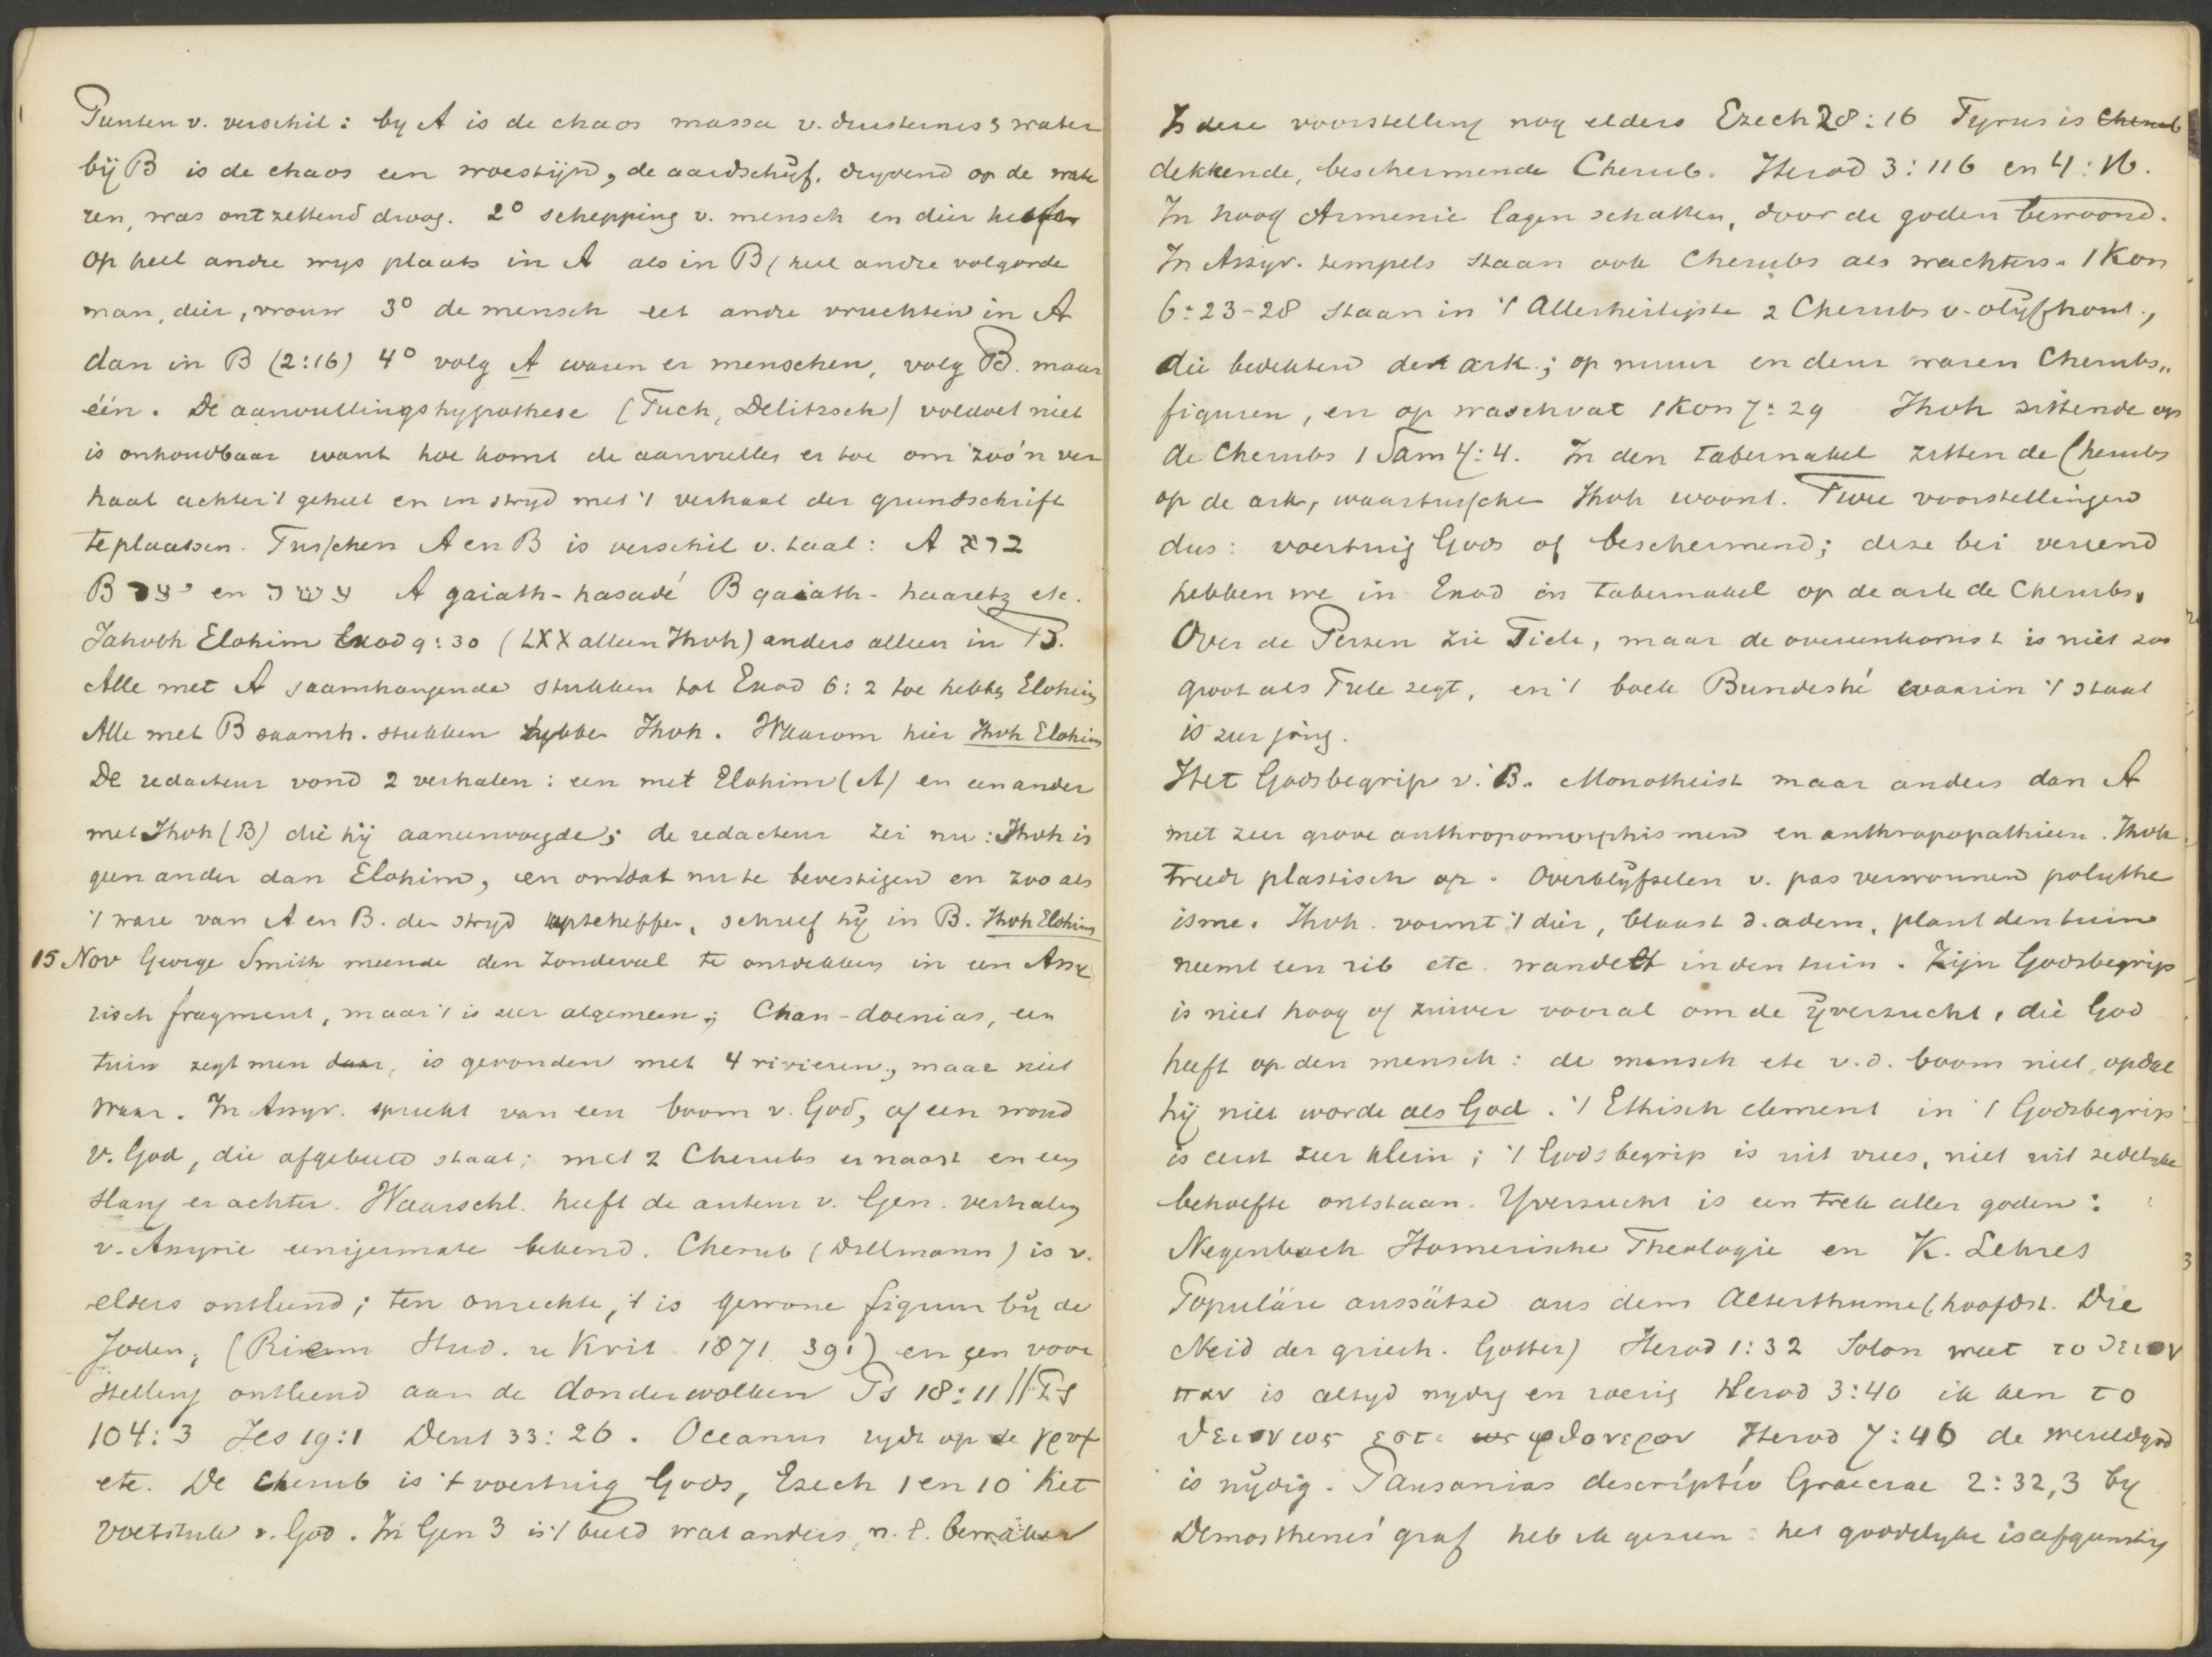 Punten v. verschil: by A is de chaos massa v. duisternis & water
bij B is de chaos een woestijn, de aardschijf, dryvend op de wate
ren, was ontzettend droog. 2° schepping v. mensch en dier hebben
op heel andre wys plaats in A als in B (heel andre volgorde
man, dier, vrouw 3° de mensch eet andre vruchten in A
dan in B (2:16) 4° volg A waren er menschen, volg B. maar
één. De aanvullingshypothese (Tuch, Delitzsch) voldoet niet
is onhoudbaar want hoe komt de aanvuller er toe om zoo'n ver
haal achter 't geheel en in stryd met 't verhaal der grundschrift
te plaatsen. Tusschen A en B is verschil v. taal: A ברא
B יצר en עשה A gaiath-hasadé B gaiath-haaretz etc.
Jahveh Elohim Exod 9:30 (LXX alleen Jhvh) anders alleen in B.
Alle met A saamhangende stukken tot Exod 6:2 toe hebben Elohim
Alle met B saamh. stukken hebben Jhvh. Waarom hier Jhvh Elohim
De redacteur vond 2 verhalen: een met Elohim (A) en een ander
met Jhvh (B) die hij aaneenvoegde; de redacteur zei nu: Jhvh is
geen ander dan Elohim, en om dat nu te bevestigen en zooals
't ware van A en B. den stryd opteheffen, schreef hij in B. Jhvh Elohim
15 Nov George Smith meende den Zondeval te ontdekken in een Assy
risch fragment, maar 't is zeer algemeen; Chan-doenias, een
tuin zegt men daar, is gevonden met 4 rivieren, maar niet
waar. In Assyr. spreekt van een boom v. God, of een woud
v. God, die afgebeeld staat; met 2 Cherubs ernaast en een
slang er achter. Waarschl. heeft de auteur v. Gen. verhalen
v. Assyrie eenigermate bekend. Cherub (Dillmann) is v.
elders ontleend; ten onrechte, 't is gewone figuur bij de
Joden; (Riehm Stud. u Krit 1871 391) en een voor
stelling ontleend aan de donderwolken Ps 18:11 // Ps
104:3 Jes 19:1 Deut 33:26. Oceanus rydt op de γρυψ
etc. De Cherub is 't voertuig Gods, Ezech 1 en 10 het
voetstuk v. God. In Gen 3 is 't beeld wat anders, n.l. bewaker
Is deze voorstelling nog elders Ezech 28:16 Tyrus is Cherub
dekkende, beschermende Cherub. Herod 3:116 en 4:16.
In hoog Armenie lagen schatten, door de goden bewoond.
In Assyr. tempels staan ook Cherubs als wachters. 1 Kon
6:23-28 staan in 't Allerheiligste 2 Cherubs v. olijfhout,
die bedekten den ark; op muur en deur waren Cherubs„
figuren, en op waschvat 1 Kon 7:29 Jhvh zittende op
de Cherubs 1 Sam 4:4. In den tabernakel zitten de Cherubs
op de ark, waartusschen Jhvh woont. Twee voorstellingen
dus: voertuig Gods of beschermend; deze bei vereend
hebben we in Exod in tabernakel op de ark de Cherubs.
Over de Perzen zie Tiele, maar de overeenkomst is niet zoo
groot als Tiele zegt, en 't boek Bundeshé waarin 't staat
is zeer jong.
Het Godsbegrip v. B. Monotheist maar anders dan A
met zeer grove anthropomorphismen en anthropopathieen. Jhvh
treedt plastisch op. Overblijfselen v. pas verwonnen polythe
isme. Jhvh. vormt 't dier, blaast d. adem, plant den tuin
neemt een rib etc. wandelt in den tuin. Zijn Godsbegrip
is niet hoog of zuiver vooral om de ijverzucht, die God
heeft op den mensch: de mensch ete v.d. boom niet, opdat
hij niet worde als God. 't Ethisch element in 't Godsbegrip
is eerst zeer klein; 't Godsbegrip is uit vrees, niet uit zedelyke
behoefte ontstaan. Yverzucht is een trek aller goden:
Negenbach Homerische Theologie en K. Lehres
Populäre aussätze aus dem Alterthume (hoofdst. Die
Neid der griech. Gotter) Herod 1:32 Solon weet το θειον
παν is altyd nydig en woerig Herod 3:40 ik ken το
θειον ως εστι ως φθονερον Herod 7:46 de wereldgod
is nijdig. Pausanias descriptio Graeciae 2:32,3 by
Demosthenes' graf heb ik gezien: het goddelyke is afgunstig